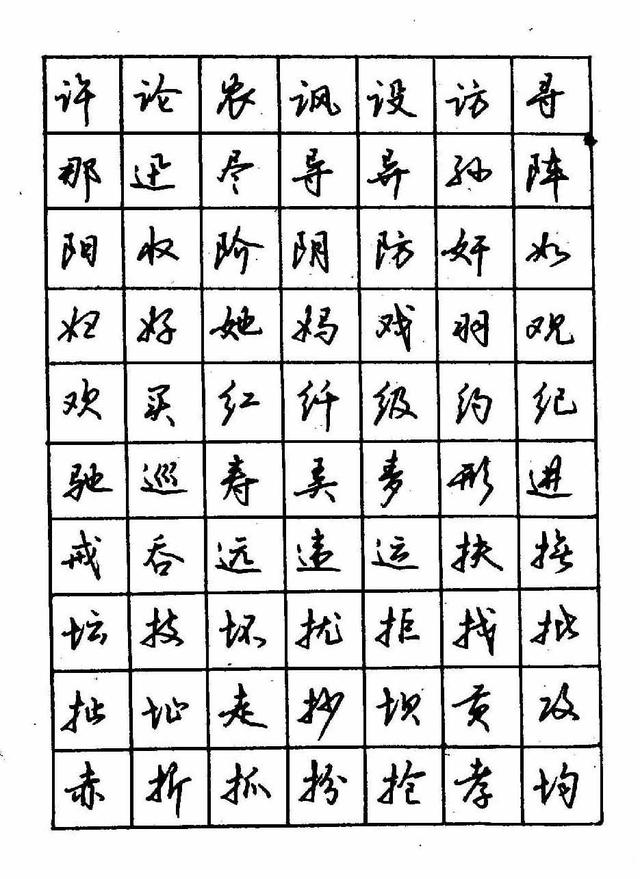 许论农讽设访寻
那迅尽导异孙阵
阳收阶阴防奸如
妇好她妈戏羽观
欢买红纤级约纪
驰巡寿弄麦形进
戒吞远违运扶抚
坛技坏扰拒找批
扯址走抄坝贡攻
赤折抓扮抢孝均